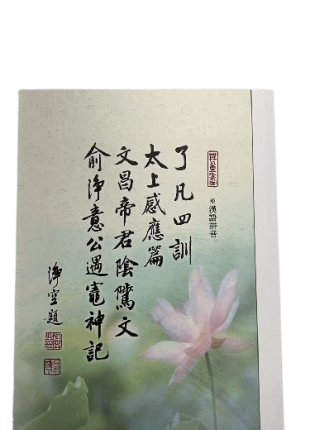 ※漢語拼音
了凡四訓
太上感應篇
文昌帝君陰騭文
俞淨意公遇竈神記
淨空題